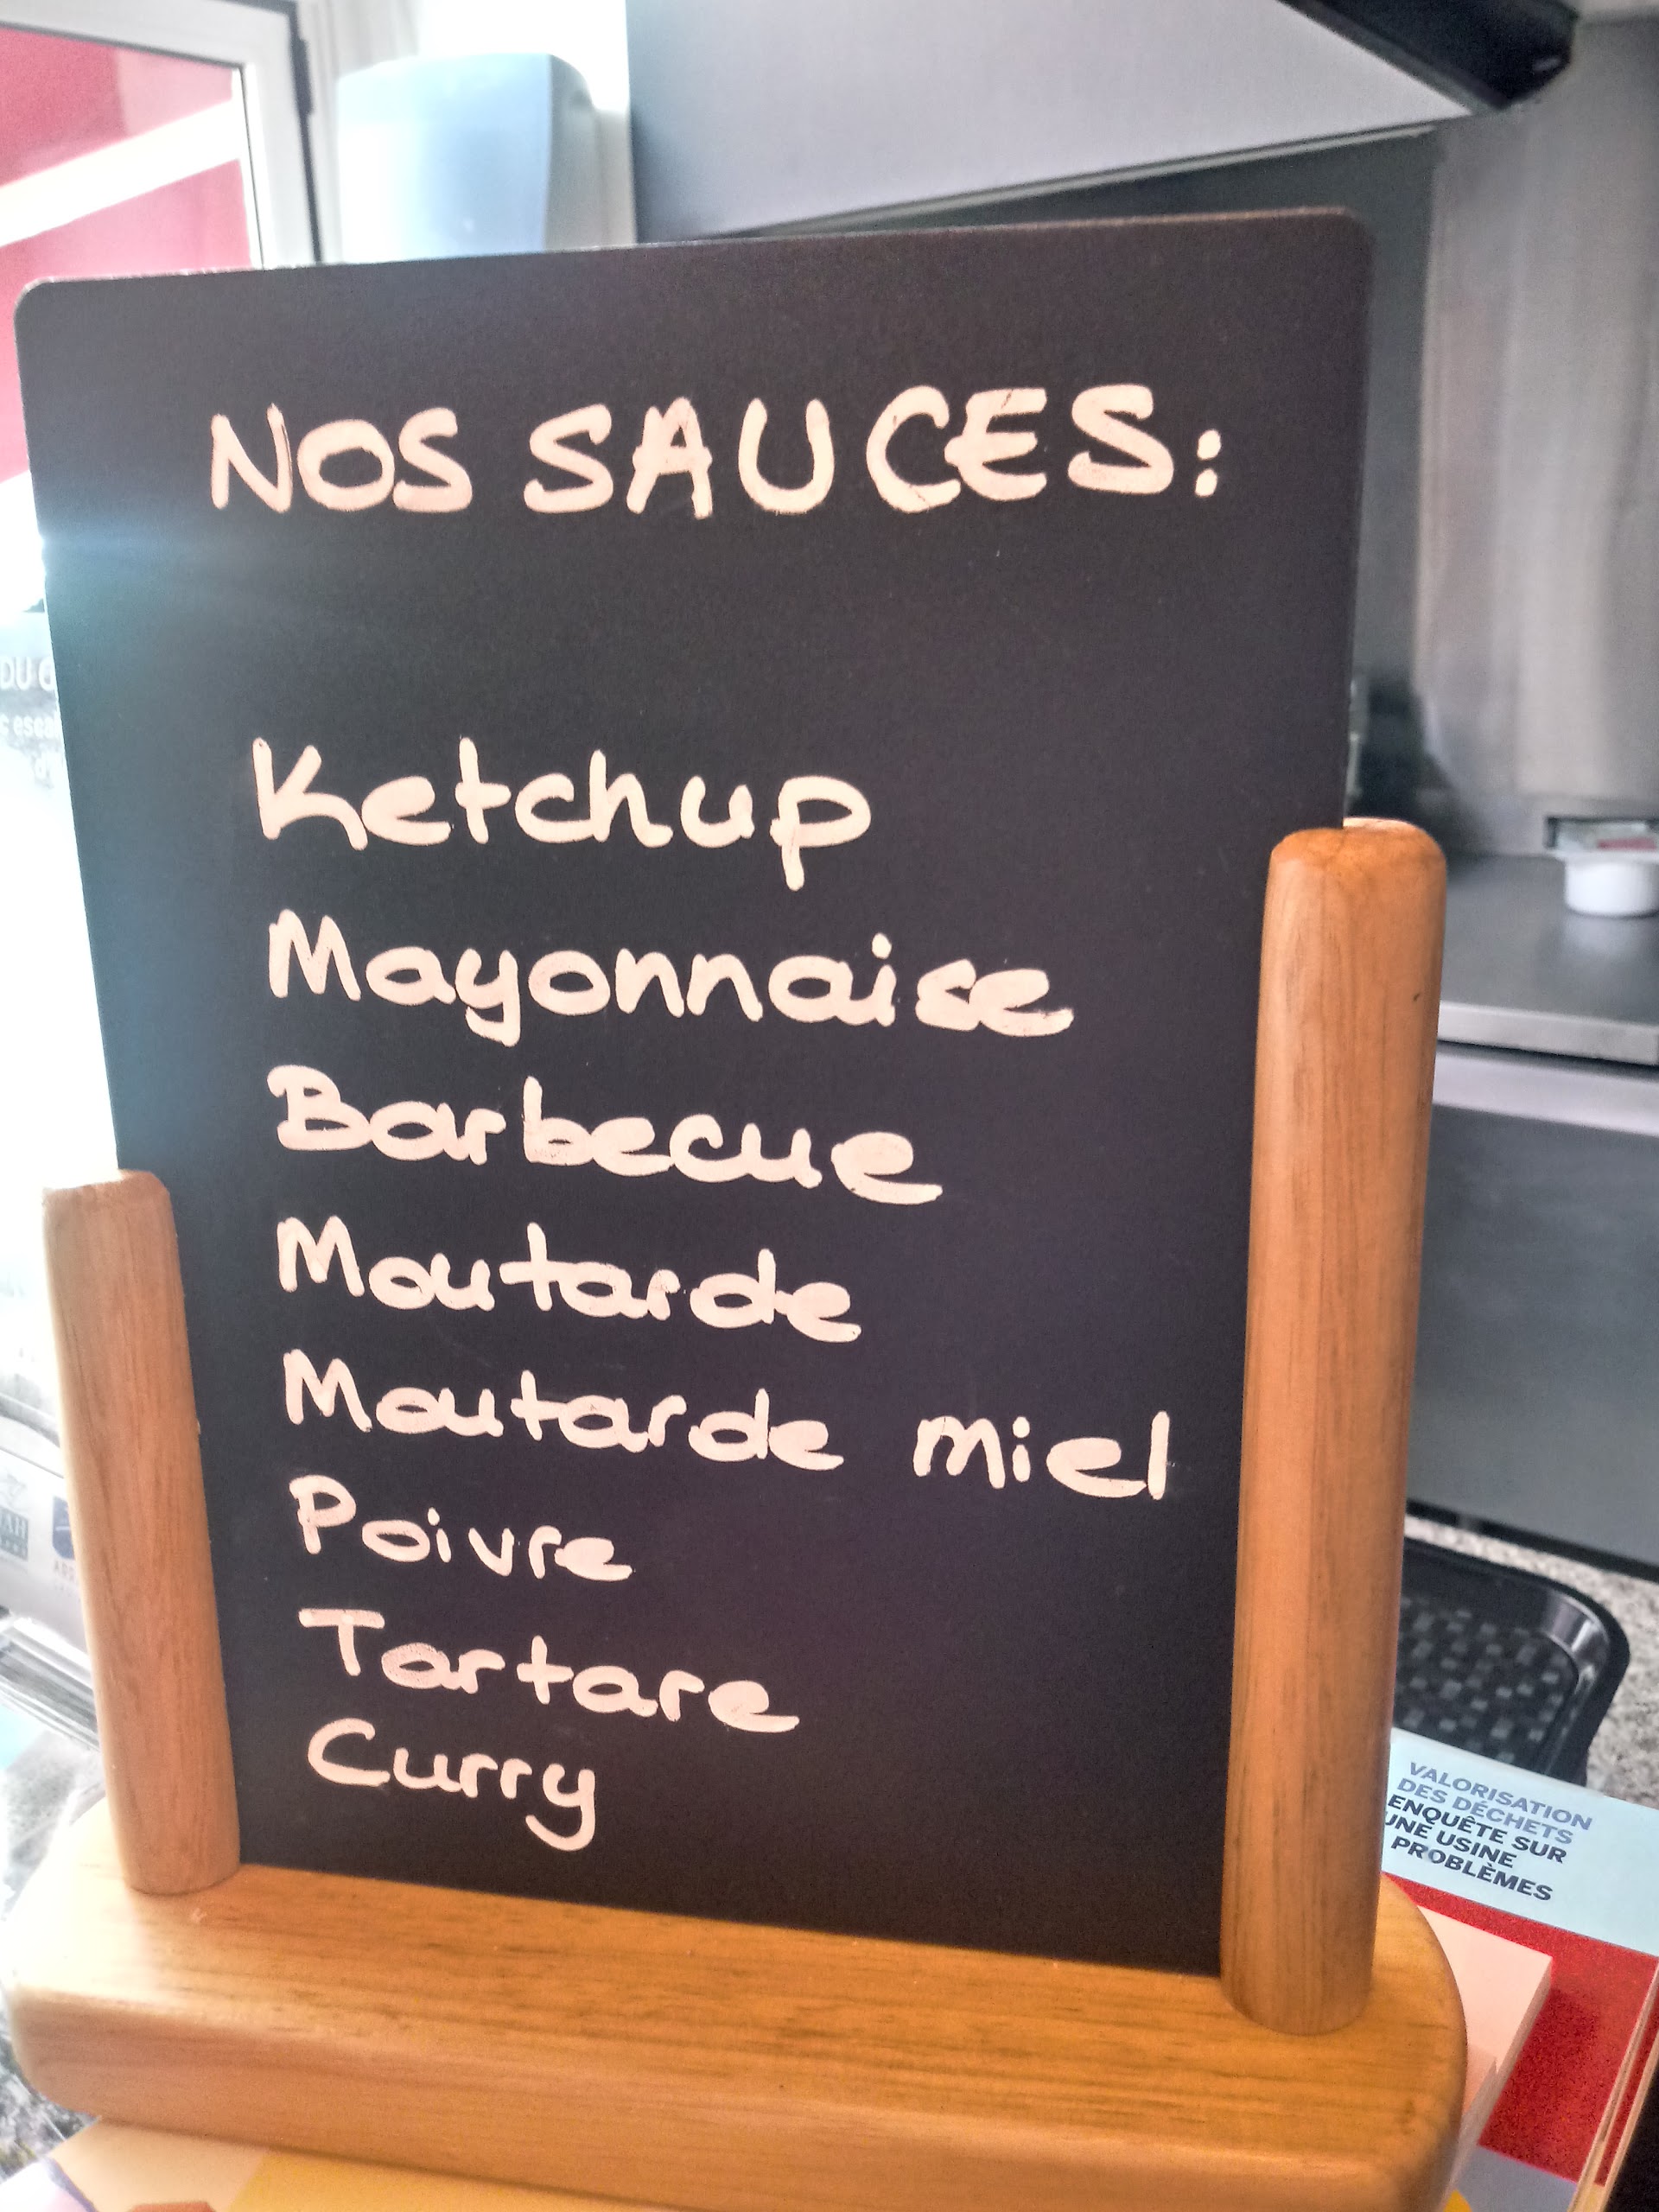 NOS SAUCES:
Ketchup
Mayonnaise
Barbecue
Moutarde
Moutarde miel
Poivre
Tartare
Curry
VALORISATION
DES DÉCHETS
ENQUÊTE SUR
UNE USINE
PROBLÈMES
DU